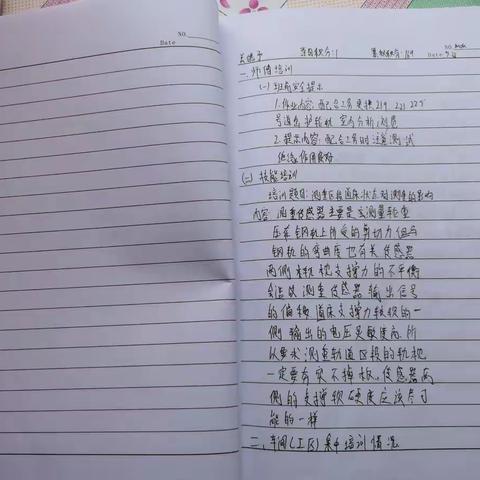 NO.
Date
NO.
Date
当日积分:1 累积积分:
一、师傅培训
(一)班前安全提示
1.作业内容:配合工务更换219 221 225
号道岔护轨 室内分析,浏览
2.提示内容:配合工务时注意测试
绝缘作用良好
(二)技能培训
培训题目:测重区段道床状态对测重的影响
内容:测重传感器主要是支测量轮重
压在钢轨上所受的剪切力但与
钢轨的弯曲度也有关传感器
两侧木轨枕支撑力的不平衡
会造成测重传感器输出信号
的偏移道床支撑力较软的一
侧输出的电压灵敏度高,所
以要求测重轨道区段的轨枕
一定要夯实不掉板,传感器两
侧的支撑软硬度应该尽可
能的一样
二、车间(工区)集中培训情况